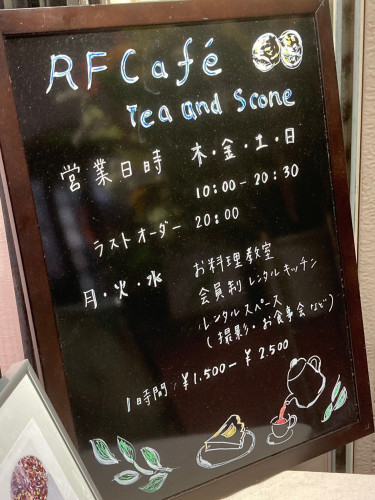 RF Café
Tea and Scone
営業日時 木・金・土・日
10:00-20:30
ラストオーダー 20:00
月・火・水 お料理教室
会員制レンタルキッチン
レンタルスペース
(撮影・お食事会など)
1時間:¥1.500-¥2.500